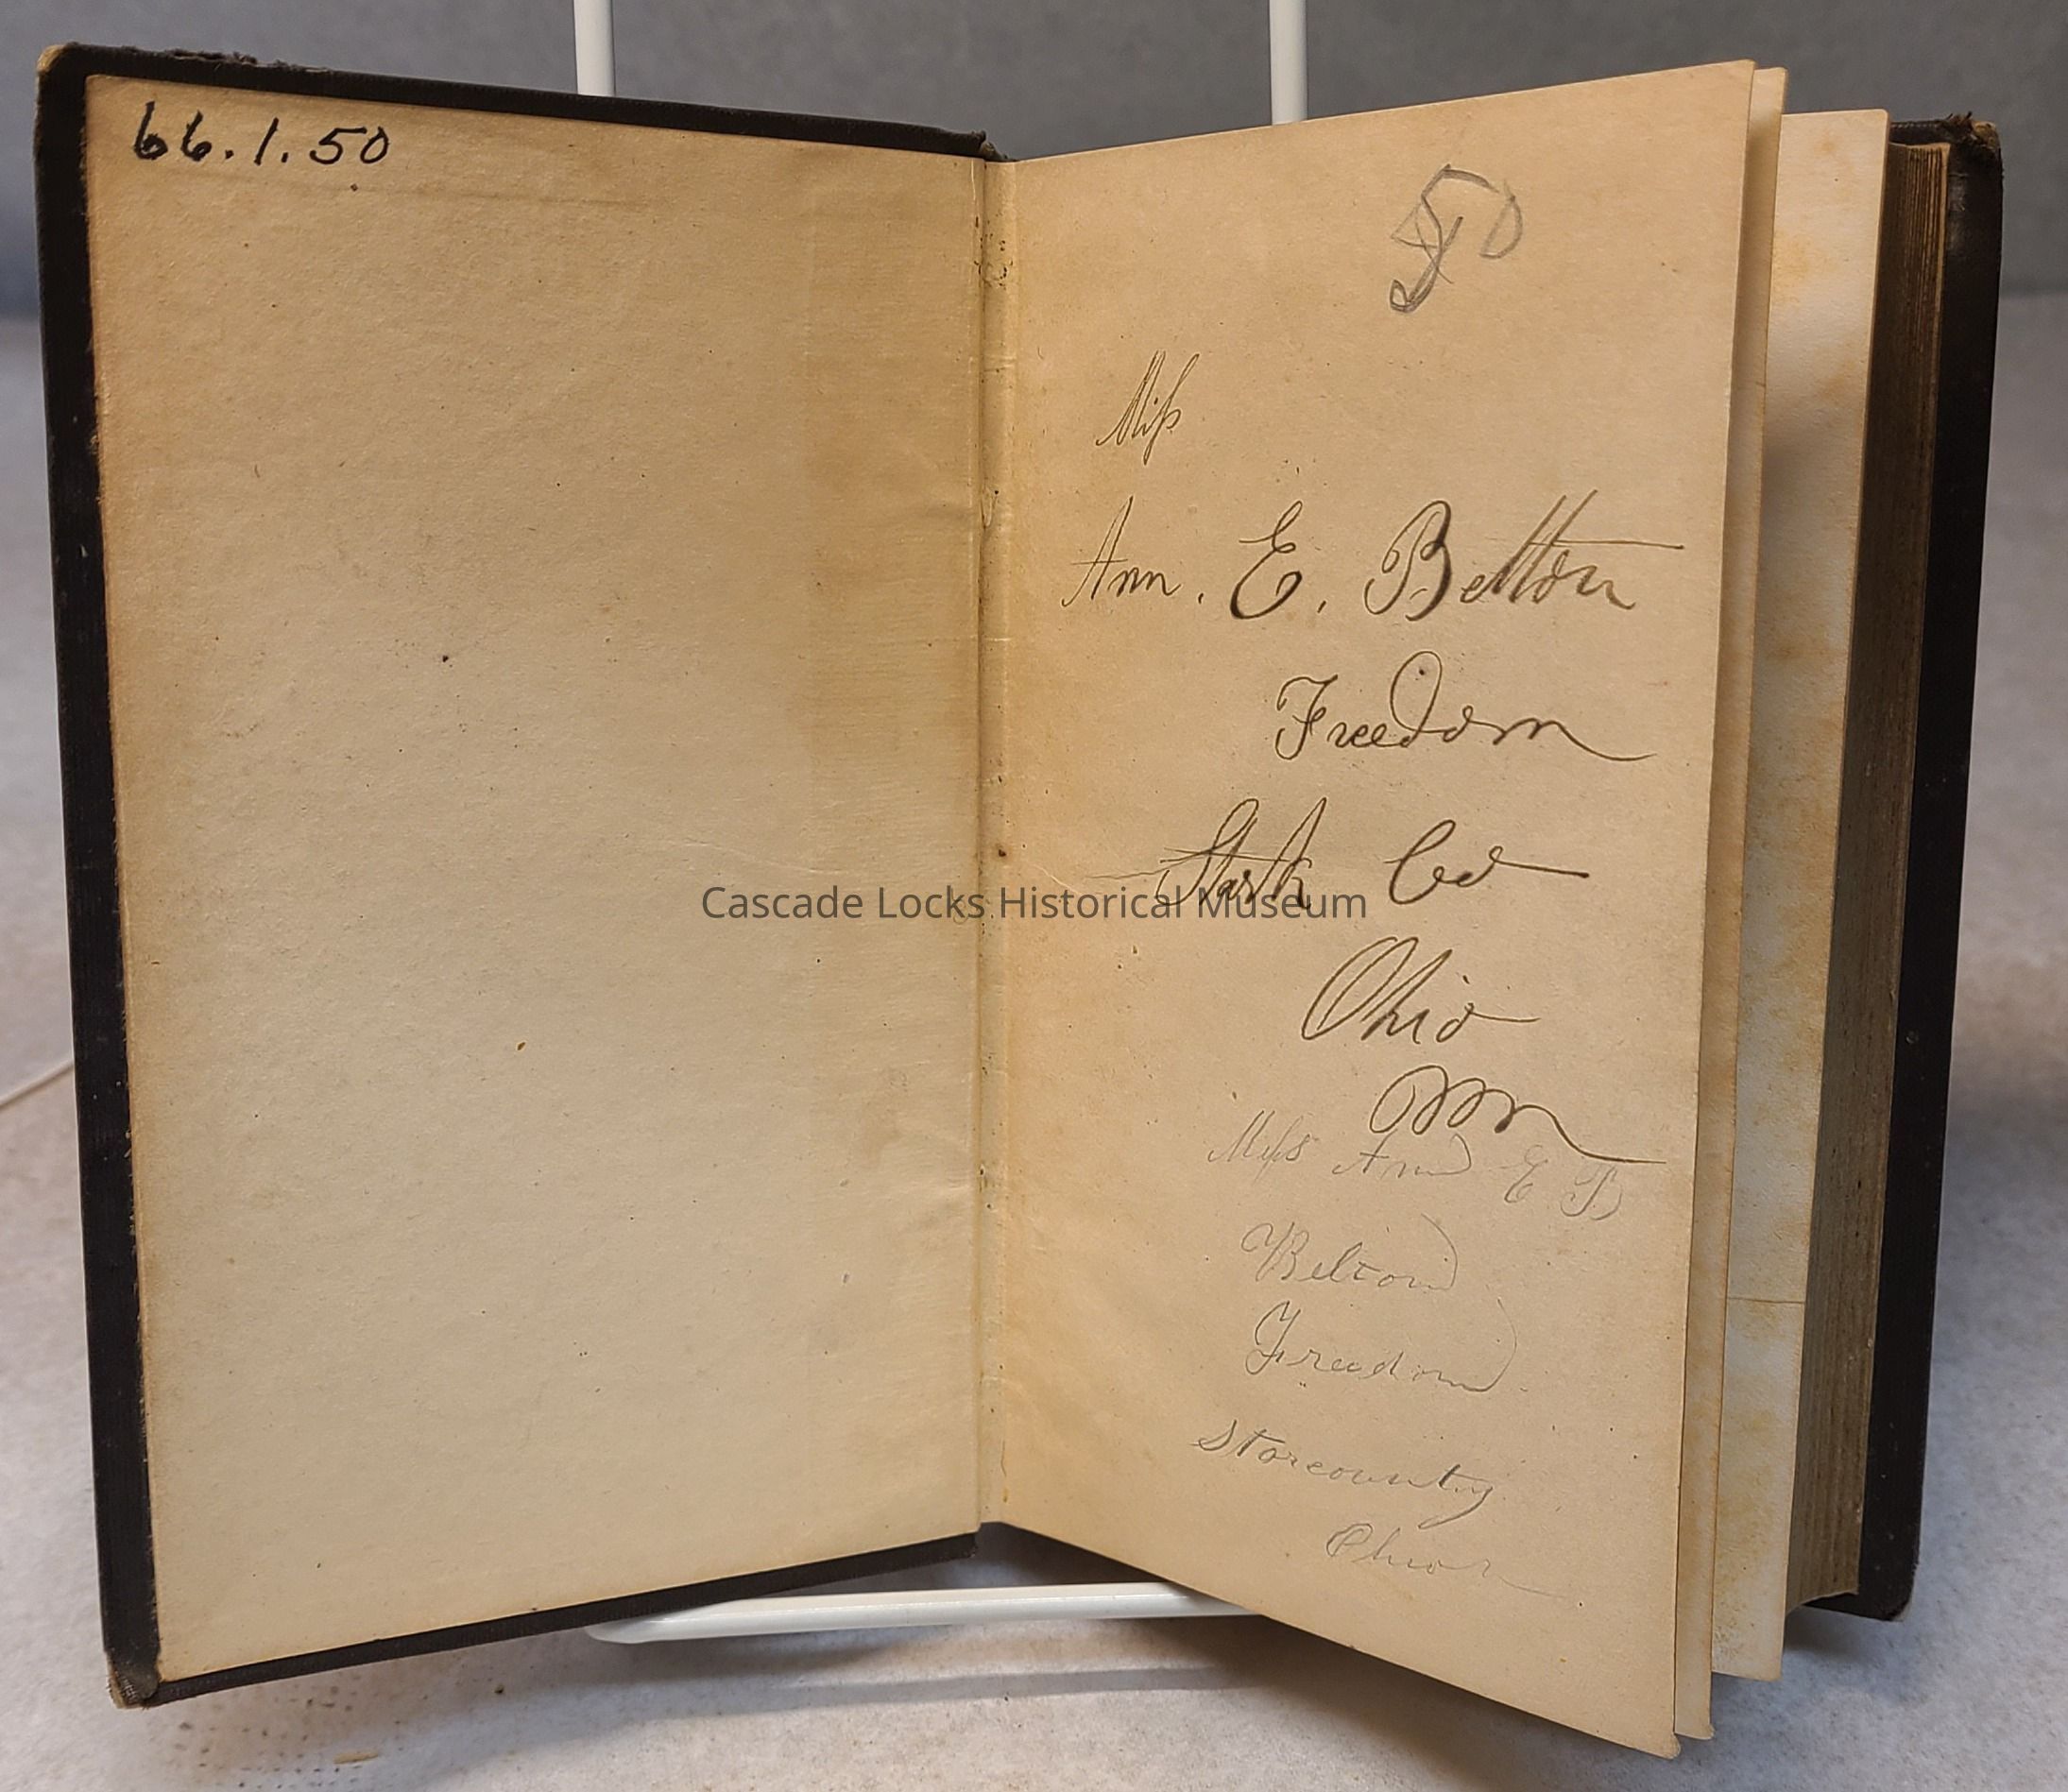 66.1.50
50
Miss
Ann. E. Belton
Freedom
Stark Co
Ohio
Cascade Locks Historical Museum
Miss Ann E B
Belton
Freedom
Starcounty
Ohio